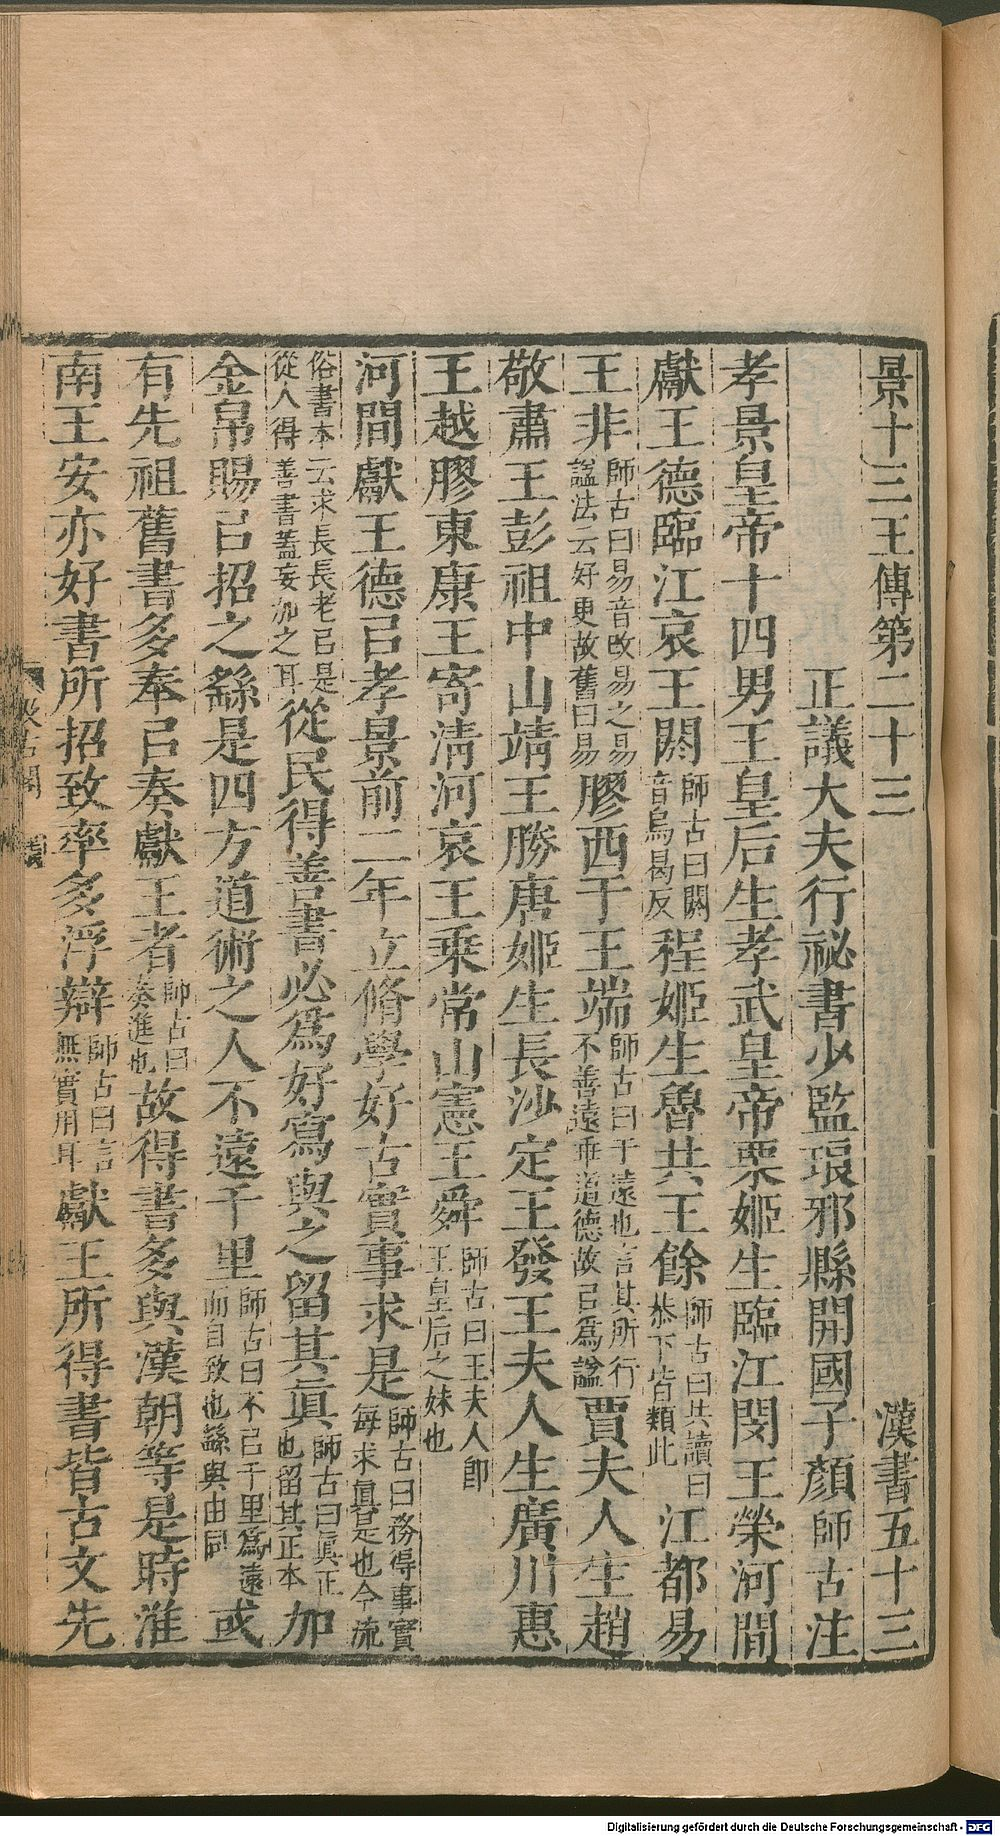 景十三王傳第二十三　漢書五十三
正議大夫行祕書少監琅邪縣開國子顏師古注
孝景皇帝十四男王皇后生孝武皇帝栗姬生臨江閔王榮河間
獻王德臨江哀王閼師古曰閼音烏曷反程姬生魯共王餘師古曰共讀曰恭下皆類此江都易
王非師古曰易音改易之易諡法云好更故舊曰易膠西于王端師古曰于遠也言其所行不善遠乖道德故㠯爲諡賈夫人生趙
敬肅王彭祖中山靖王勝唐姬生長沙定王發王夫人生廣川惠
王越膠東康王寄清河哀王乗常山憲王舜師古曰王夫人卽王皇后之妹也
河間獻王德㠯孝景前二年立脩學好古實事求是師古曰務得事實每求眞是也今流
俗書本云求長長老㠯是從人得善書蓋妄加之耳從民得善書必爲好寫與之留其眞師古曰眞正也留其正本加
金帛賜㠯招之繇是四方道術之人不遠千里師古曰不㠯千里爲遠而自致也繇與由同或
有先祖舊書多奉㠯奏獻王者師古曰奏進也故得書多與漢朝等是時淮
南王安亦好書所招致率多浮辯師古曰言無實用耳獻王所得書皆古文先
汲古閣
Digitalisierung gefördert durch die Deutsche Forschungsgemeinschaft - DFG